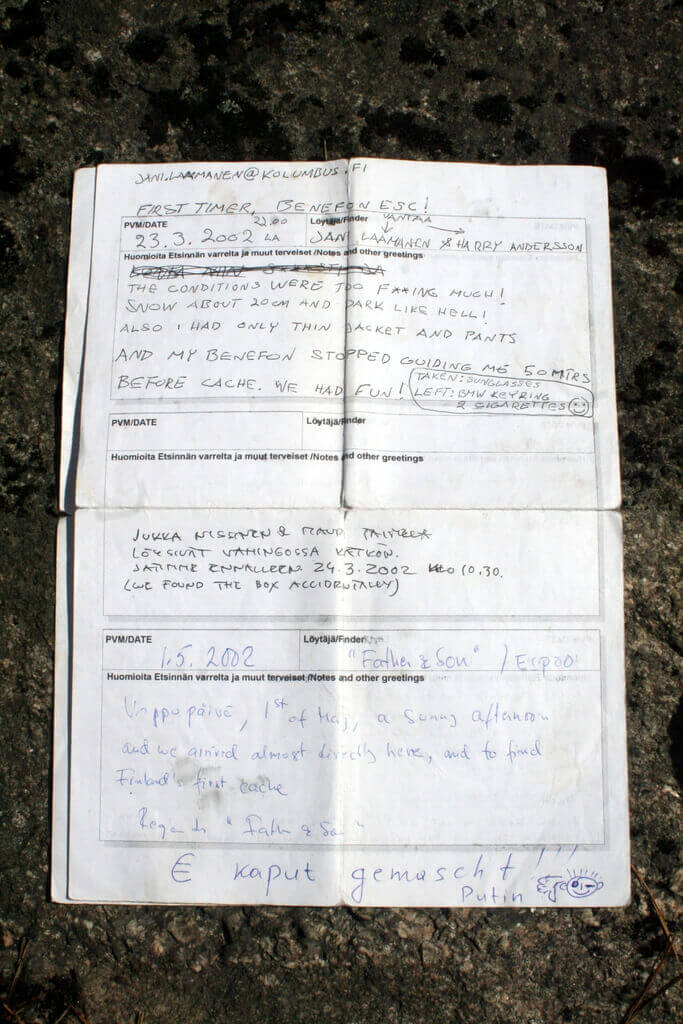 JANI.LAAMANEN@KOLUMBUS.FI
FIRST TIMER, BENEFON ESC!
PVM/DATE 22.00 Löytäjä/Finder VANTAA
23.3. 2002 LA JANI LAAMANEN & HARRY ANDERSSON
Huomioita Etsinnän varrelta ja muut terveiset /Notes and other greetings
THE CONDITIONS WERE TOO F**ING MUCH!
SNOW ABOUT 20CM AND DARK LIKE HELL!
ALSO I HAD ONLY THIN JACKET AND PANTS
AND MY BENEFON STOPPED GUIDING ME 50 MTRS
BEFORE CACHE. WE HAD FUN!
TAKEN: SUNGLASSES
LEFT: BMW KEYRING
2 CIGARETTES
PVM/DATE Löytäjä/Finder
Huomioita Etsinnän varrelta ja muut terveiset /Notes and other greetings
JUKKA NISSINEN &
LÖYSIVÄT VAHINGOSSA KÄTKÖN.
JÄTIMME ENNALLEEN. 24.3.2002 KLO 10.30.
(WE FOUND THE BOX ACCIDENTALLY)
PVM/DATE Löytäjä/Finder
1.5. 2002 "Father & Son" / Espoo
Huomioita Etsinnän varrelta ja muut terveiset /Notes and other greetings
Vappupäivä, 1st of May, a sunny afternoon
and we arrived almost directly here, and to find
Finland's first cache
Regards "Father & Son"
€ kaput gemascht!!!
Putin